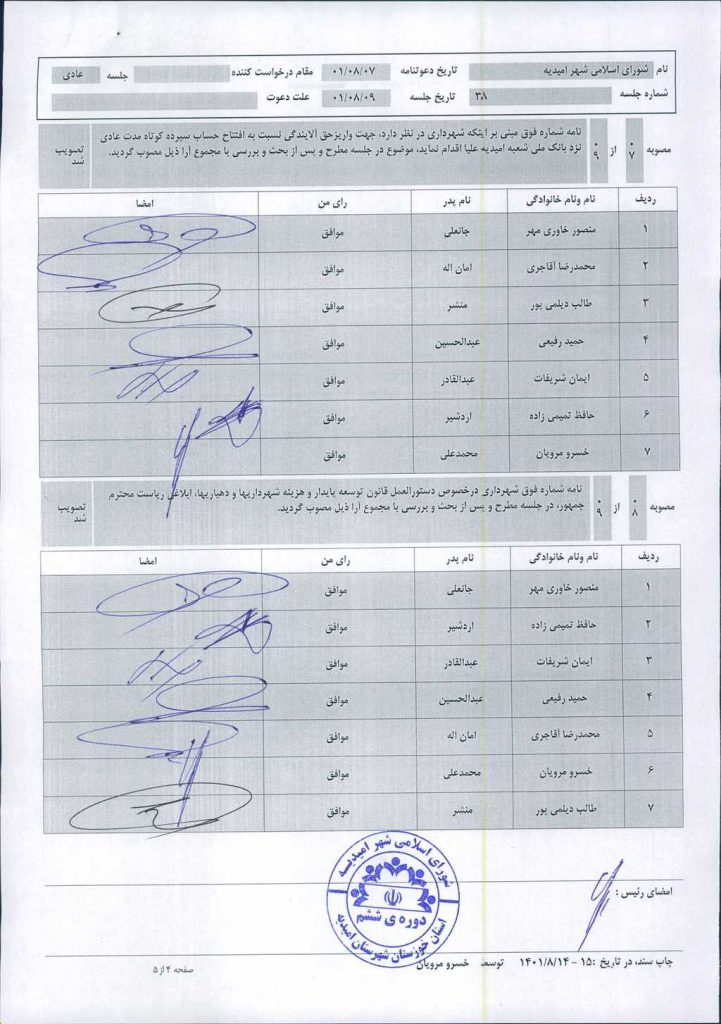 نام شورای اسلامی شهر امیدیه تاریخ دعوتنامه ۰۱/۰۸/۰۷ مقام درخواست کننده جلسه عادی
شماره جلسه ۳۸ تاریخ جلسه ۰۱/۰۸/۰۹ علت دعوت
مصوبه ۰۷ از ۰۹ نامه شماره فوق مبنی بر اینکه شهرداری در نظر دارد، جهت واریزحق آلایندگی نسبت به افتتاح حساب سپرده کوتاه مدت عادی
نزد بانک ملی شعبه امیدیه علیا اقدام نماید، موضوع در جلسه مطرح و پس از بحث و بررسی با مجموع آرا ذیل مصوب گردید. تصویب شد
ردیف نام ونام خانوادگی نام پدر رای من امضا
۱ منصور خاوری مهر جانعلی موافق
۲ محمدرضا آقاجری امان اله موافق
۳ طالب دیلمی پور منشر موافق
۴ حمید رفیعی عبدالحسین موافق
۵ ایمان شریفات عبدالقادر موافق
۶ حافظ تمیمی زاده اردشیر موافق
۷ خسرو مرویان محمدعلی موافق
مصوبه ۰۸ از ۰۹ نامه شماره فوق شهرداری درخصوص دستورالعمل قانون توسعه پایدار و هزینه شهرداریها و دهیاریها، ابلاغی ریاست محترم
جمهور، در جلسه مطرح و پس از بحث و بررسی با مجموع آرا ذیل مصوب گردید. تصویب شد
ردیف نام ونام خانوادگی نام پدر رای من امضا
۱ منصور خاوری مهر جانعلی موافق
۲ حافظ تمیمی زاده اردشیر موافق
۳ ایمان شریفات عبدالقادر موافق
۴ حمید رفیعی عبدالحسین موافق
۵ محمدرضا آقاجری امان اله موافق
۶ خسرو مرویان محمدعلی موافق
۷ طالب دیلمی پور منشر موافق
شورای اسلامی شهر امیدیه
دوره ی ششم
استان خوزستان شهرستان امیدیه
امضای رئیس :
چاپ سند، در تاریخ :۱۵ - ۱۴۰۱/۸/۱۴ توسط خسرو مرویان صفحه ۴ از ۵